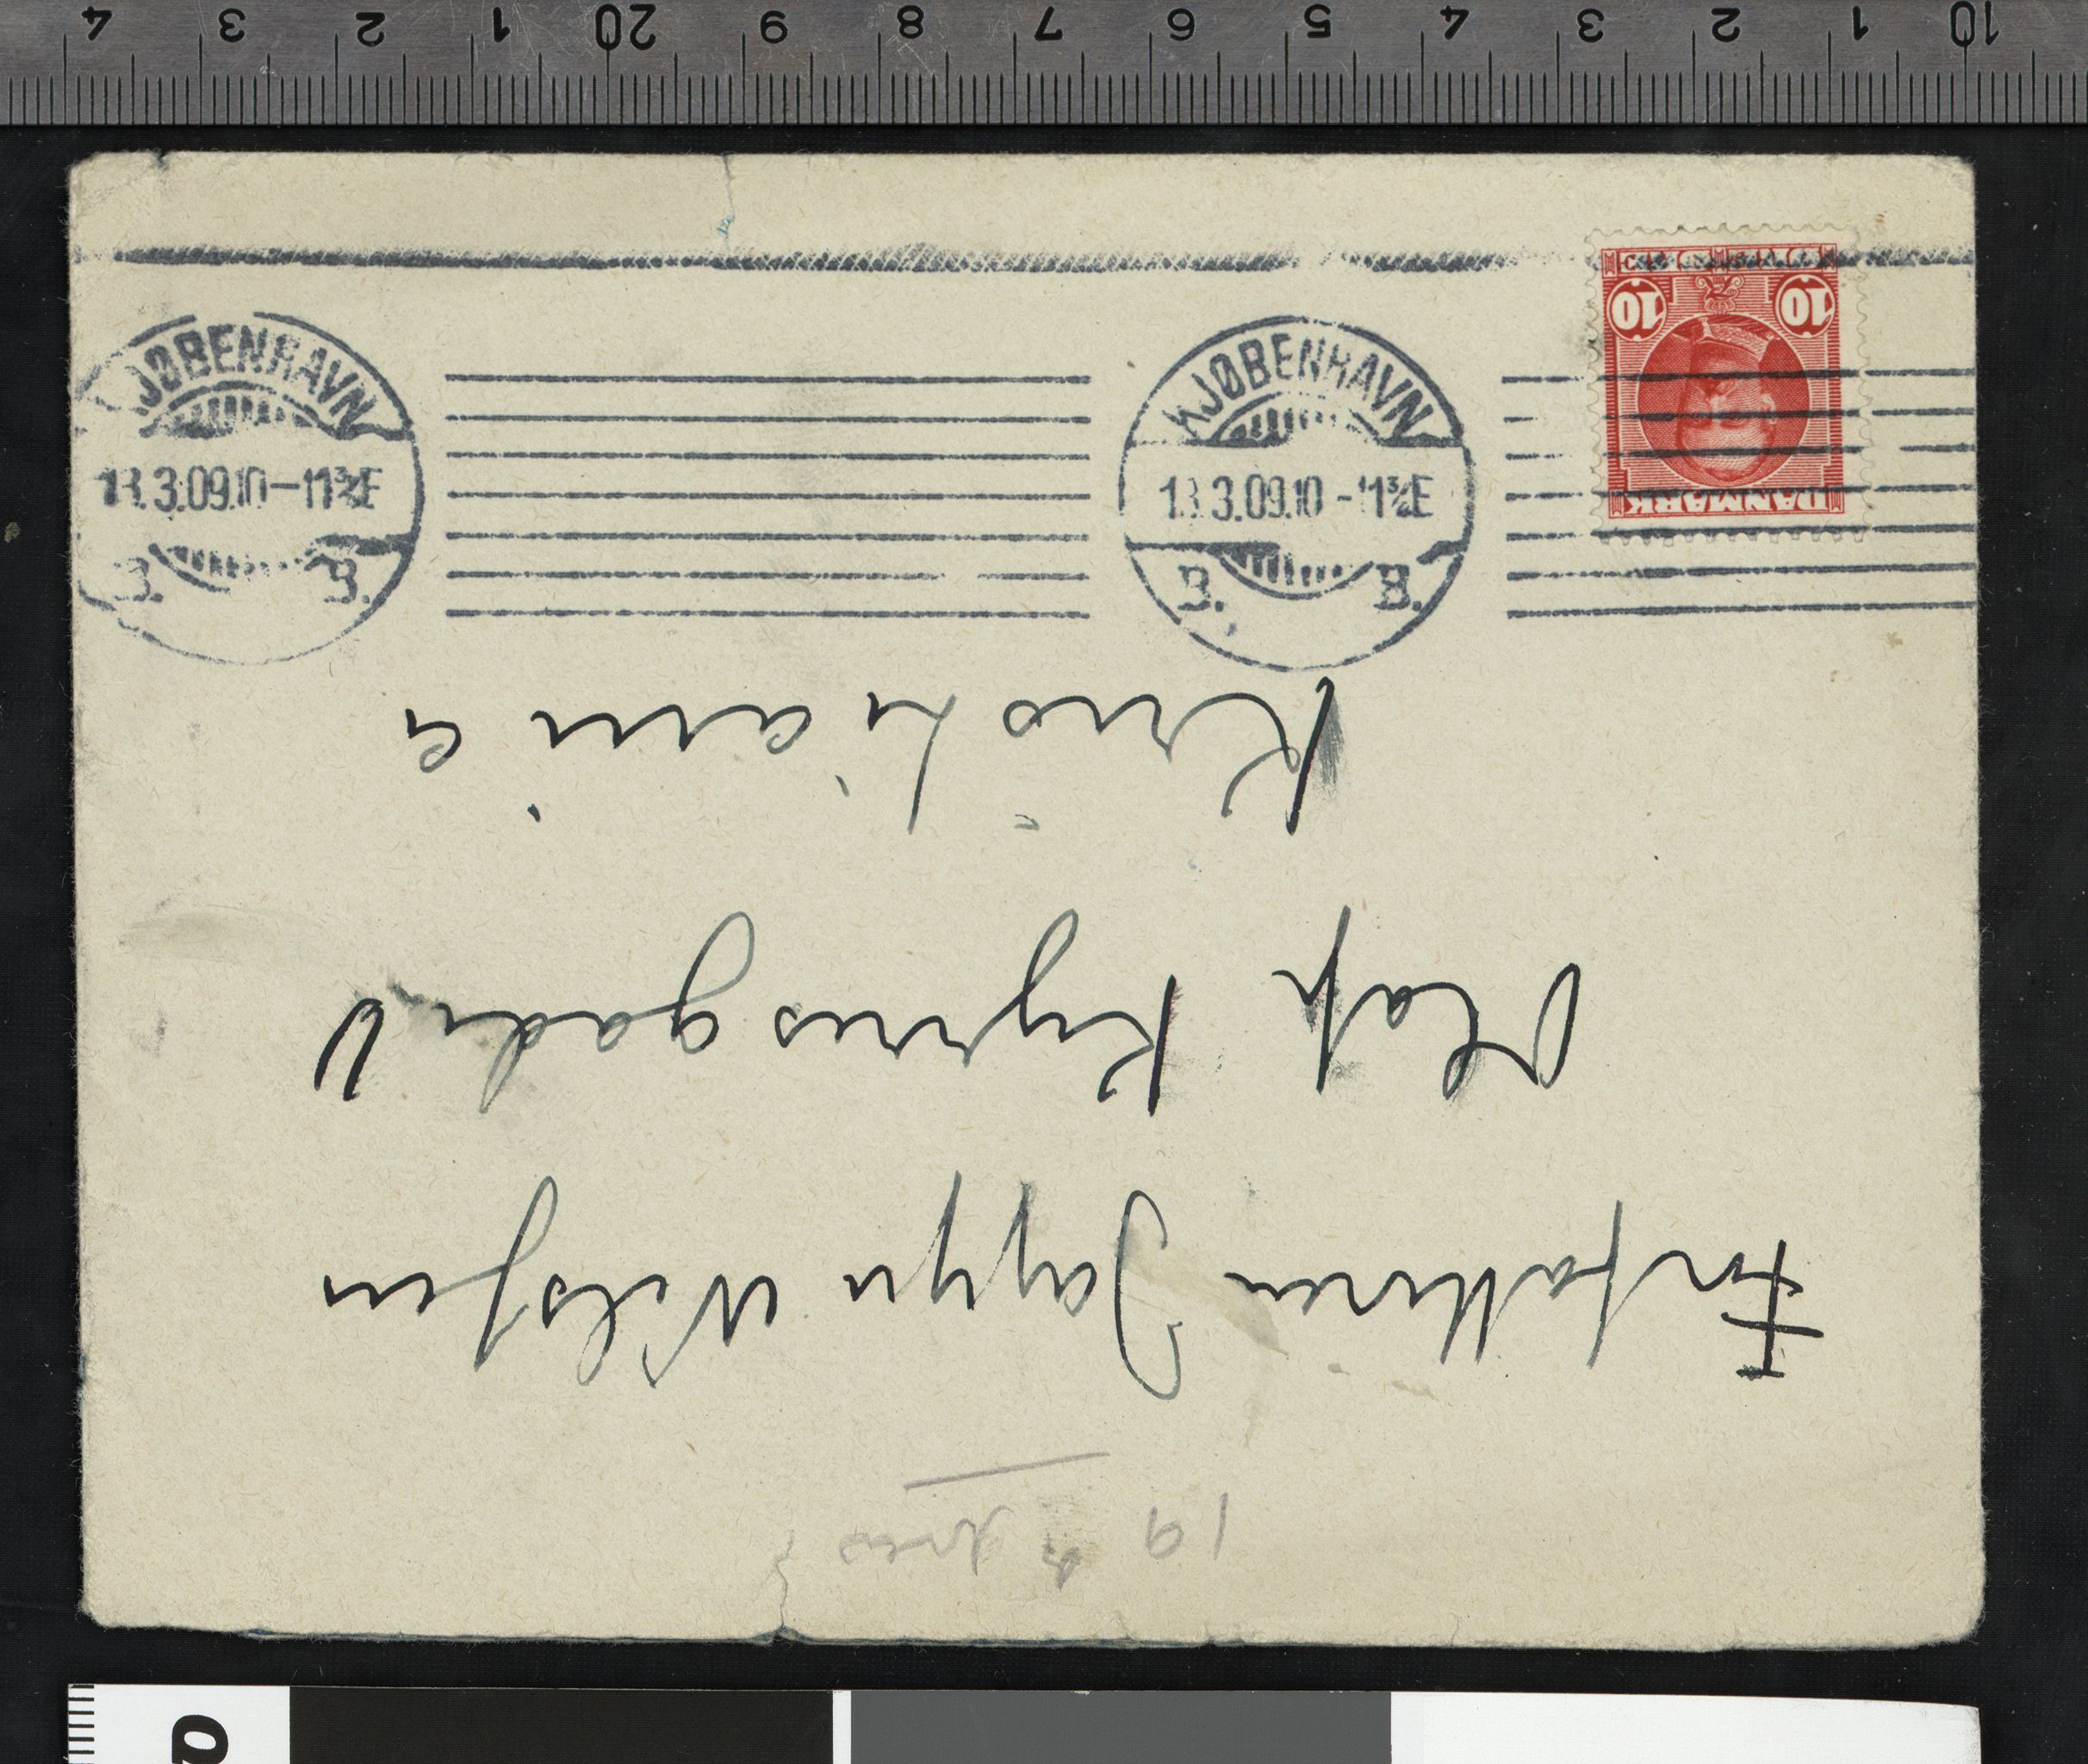 19 brev
Forfatteren Jappe Nilssen
Olaf Kyrresgade
Kristiania
KJØBENHAVN
13.3.09.10-11¾E
B. B.
KJØBENHAVN
13.3.09.10-11¾E
B. B.
DANMARK
10 10
4 3 2 1 20 9 8 7 6 5 4 3 2 1 10